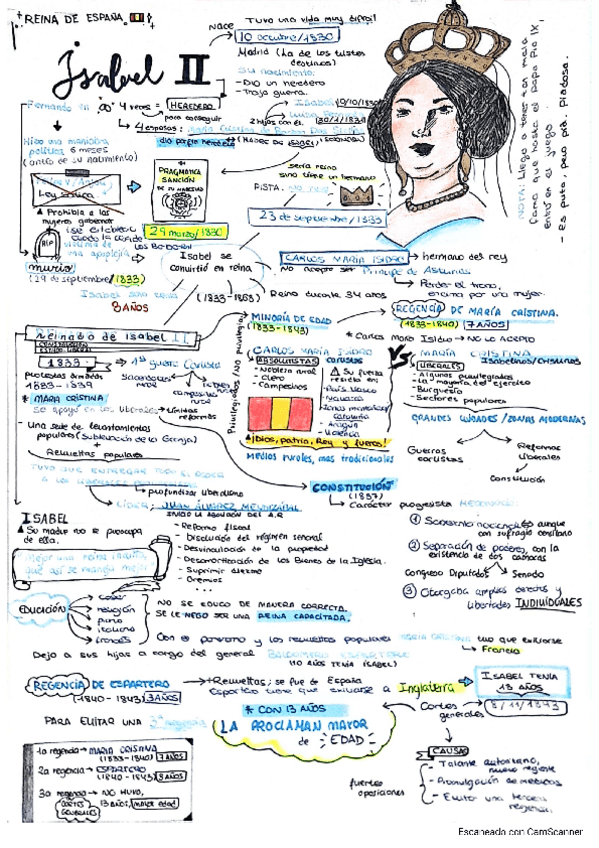 REINA DE ESPAÑA
Isabel II
Nace
TUVO una vida muy difícil!
10 octubre/1830
Madrid (La de los tristes destinos)
Su nacimiento:
- Dio un heredero
- Trajo guerra.
4 veces = HEREDERO
para conseguir
4 esposas:
2 hijas con él.
Isabel (10/10/1830)
Luisa
Hizo una maniobra
política 6 meses
(antes de su nacimiento)
Ley Sálica
PRAGMÁTICA
SANCIÓN
Prohibía a las
mujeres gobernar
29 marzo/1830
sería reina
sino tiene un hermano
PISTA: NO
23 de septiembre/1833
NOTA: Llegó a tener tan mala
fama que hasta el Papa Pío IX,
entró en el juego.
- Es puta, pero pía. Piadosa.
RIP
murió
(29 de septiembre/1833)
Isabel se
convirtió en reina
(1833-1868)
Reina durante 34 años
Isabel solo tenía
3 AÑOS
CARLOS MARÍA ISIDRO → hermano del rey
No acepto ser Príncipe de Asturias
Perder el trono,
encima por una mujer.
MINORÍA DE EDAD
(1833-1843)
REGENCIA DE MARÍA CRISTINA.
(1833-1840) 7 AÑOS
* Carlos María Isidro → NO LO ACEPTO
Reinado de Isabel II
1833
1ª Guerra Carlista
1833-1839
* MARÍA CRISTINA
se apoyó en los liberales → tímidas
reformas
- Una serie de levantamientos
populares (Sublevación de la Granja)
+
Revueltas populares
Tuvo que entregar todo el poder
a los liberales
profundizar liberalismo
LÍDER: JUAN ÁLVAREZ MENDIZÁBAL
INICIÓ LA ABOLICIÓN DEL A.R
CARLOS MARÍA ISIDRO
ABSOLUTISTAS carlistas
- Nobleza rural
- Clero
- Campesinos
Su fuerza
residía en
- País Vasco
- Navarra
- Zonas montañosas
Cataluña
- Aragón
- Valencia
¡Dios, patria, Rey y fueros!
Medios rurales, más tradicionales
VS
MARÍA CRISTINA
Isabelinos/Cristinos
LIBERALES
- Algunos privilegiados
- La mayoría del ejército
- Burguesía
- Sectores populares
GRANDES CIUDADES / ZONAS MODERNAS
Guerras
carlistas
Reformas
liberales
Constitución
CONSTITUCIÓN
(1837)
Carácter progresista
① Soberanía nacional aunque
con sufragio censitario
② Separación de poderes, con la
existencia de dos cámaras
Congreso Diputados
Senado
③ Otorgaba amplios derechos y
libertades INDIVIDUALES
ISABEL
Su madre no se preocupa
de ella.
Mejor una reina inculta,
que así se maneja mejor
- Reforma fiscal
- Disolución del régimen señorial
- Desvinculación de la propiedad
- Desamortización de los Bienes de la Iglesia.
- Suprimir diezmo
- Gremios
...
EDUCACIÓN
coser
religión
piano
italiano
francés
NO SE EDUCO DE MANERA CORRECTA.
SE LE NEGÓ SER UNA REINA CAPACITADA.
MARÍA CRISTINA tuvo que exiliarse
Francia
Dejo a sus hijas a cargo del general BALDOMERO ESPARTERO
(10 AÑOS TENÍA ISABEL)
REGENCIA DE ESPARTERO
(1840-1843) 3 AÑOS
+ Revueltas; se fue de España
Espartero tuvo que exiliarse a Inglaterra
ISABEL TENÍA
13 AÑOS
Cortes
generales
8/11/1843
PARA EVITAR UNA 3ª regencia
* CON 13 AÑOS
LA PROCLAMAN MAYOR
de EDAD
1a regencia → MARÍA CRISTINA
(1833-1840) 7 AÑOS
2a regencia → ESPARTERO
(1840-1843) 3 AÑOS
3a regencia → NO HUVO,
CORTES
GENERALES
13 AÑOS, mayor edad
fuertes
oposiciones
CAUSAS
- Talante autoritario,
- Promulgación de medidas
- Evitar una tercera
regencia.
Escaneado con CamScanner